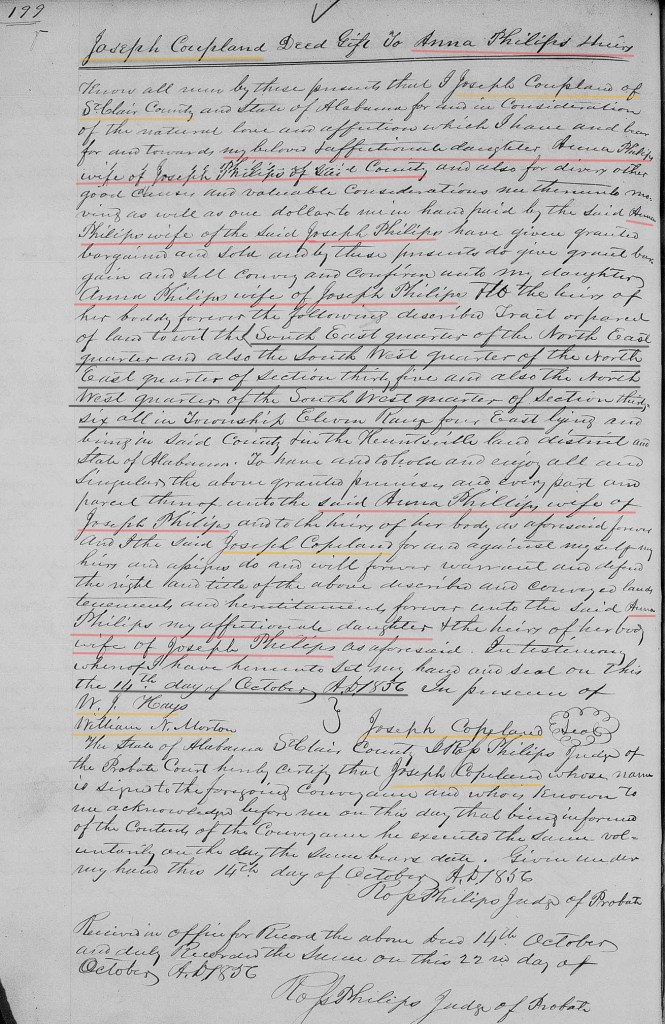 199
Joseph Coupland Deed Gift To Anna Philips Heirs
Know all men by these presents that I Joseph Coupland of
St Clair County and State of Alabama for and in Consideration
of the natural love and affection which I have and bear
for and towards my beloved & affectionate daughter Anna Philips
wife of Joseph Philips of said County and also for divers other
good causes and valuable considerations me thereunto mo-
ving as will as one dollar to me in hand paid by the said Anna
Philips wife of the said Joseph Philips have given granted
bargained and Sold and by these presents do give grant bar
gain and Sell Convey and Confirm unto my daughter
Anna Philips wife of Joseph Philips the heirs of
her body forever the following discribed Tract or parcel
of land to wit the South East quarter of the North East
quarter and also the South West quarter of the North
East quarter of Section thirty five and also the North
West quarter of the South West quarter of Section thirty
six all in Township Eleven Range four East lying and
being in said County & in the Huntsville land district and
State of Alabama. To have and to hold and enjoy all and
Singular the above granted premises and every part and
parcel thereof unto the said Anna Phillips wife of
Joseph Philips and to the heirs of her body as aforesaid forever
and I the said Joseph Copeland for and against my self my
heirs and assigns do and will forever warrant and defend
the right and title of the above discribed and conveyed lands
tenements and hereditaments forever unto the said Anna
Philips my affectionate daughter & the heirs of her body
wife of Joseph Philips as aforesaid. In testimony
whereof I have hereunto Set my hand and seal on this
the 14th day of October A.D. 1856 In presence of
W. J. Hays
William N. Morton } Joseph Copeland Seal
The State of Alabama St Clair County I Ross Philips Judge of
the Probate Court hereby certify that Joseph Copeland whose name
is signed to the foregoing Conveyance and who is Known to
me acknowledged before me on this day that being informed
of the Contents of the Conveyance he executed the same vol-
untarily on the day the same bears date. Given under
my hand this 14th day of October A.D. 1856
Ross Philips Judge of Probate
Received in office for Record the above deed 14th October
and duly Recorded the same on this 22nd day of
October A.D. 1856
Ross Philips Judge of Probate